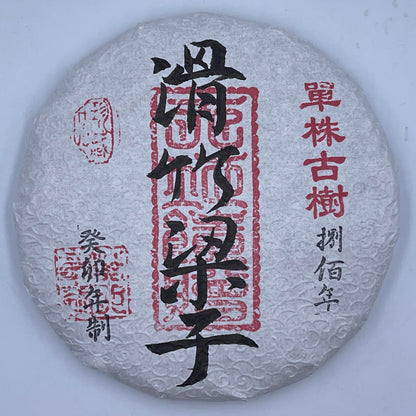 單株古樹
捌佰年
滑竹梁子
癸卯年制